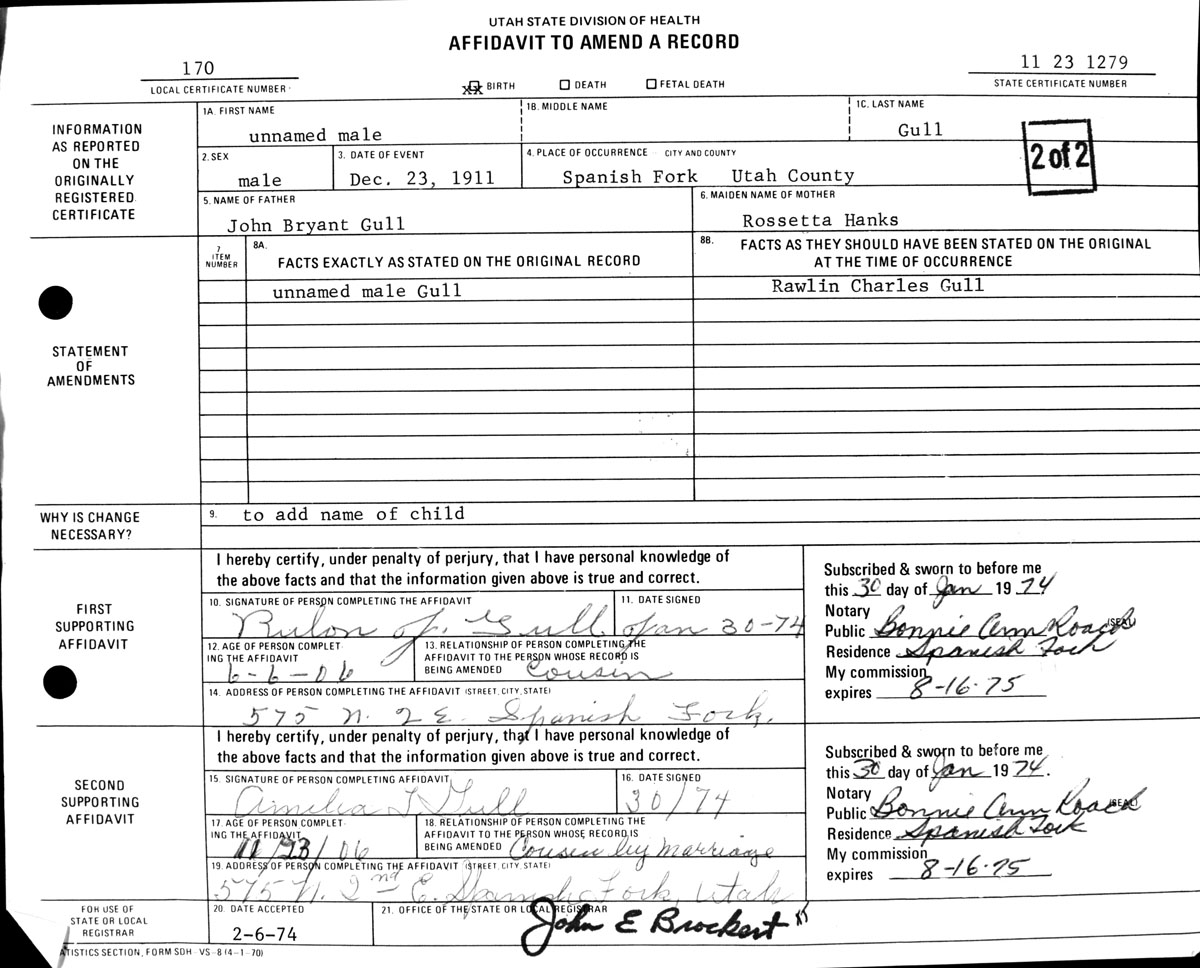 UTAH STATE DIVISION OF HEALTH
AFFIDAVIT TO AMEND A RECORD
170
LOCAL CERTIFICATE NUMBER
XX BIRTH DEATH FETAL DEATH
11 23 1279
STATE CERTIFICATE NUMBER
INFORMATION
AS REPORTED
ON THE
ORIGINALLY
REGISTERED
CERTIFICATE
1A. FIRST NAME 1B. MIDDLE NAME 1C. LAST NAME
unnamed male Gull
2 of 2
2. SEX 3. DATE OF EVENT 4. PLACE OF OCCURRENCE - CITY AND COUNTY
male Dec. 23, 1911 Spanish Fork Utah County
5. NAME OF FATHER 6. MAIDEN NAME OF MOTHER
John Bryant Gull Rossetta Hanks
STATEMENT
OF
AMENDMENTS
7
ITEM
NUMBER
8A.
FACTS EXACTLY AS STATED ON THE ORIGINAL RECORD
8B. FACTS AS THEY SHOULD HAVE BEEN STATED ON THE ORIGINAL
AT THE TIME OF OCCURRENCE
unnamed male Gull Rawlin Charles Gull
WHY IS CHANGE
NECESSARY?
9. to add name of child
FIRST
SUPPORTING
AFFIDAVIT
I hereby certify, under penalty of perjury, that I have personal knowledge of
the above facts and that the information given above is true and correct.
10. SIGNATURE OF PERSON COMPLETING THE AFFIDAVIT 11. DATE SIGNED
Rulon J. Gull Jan 30-74
12. AGE OF PERSON COMPLET
ING THE AFFIDAVIT
6-6-06
13. RELATIONSHIP OF PERSON COMPLETING THE
AFFIDAVIT TO THE PERSON WHOSE RECORD IS
BEING AMENDED Cousin
14. ADDRESS OF PERSON COMPLETING THE AFFIDAVIT (STREET, CITY, STATE)
575 N. 2 E. Spanish Fork.
Subscribed & sworn to before me
this 30 day of Jan 1974
Notary
Public Bonnie Ann Roach (SEAL)
Residence Spanish Fork
My commission
expires 8-16-75
SECOND
SUPPORTING
AFFIDAVIT
I hereby certify, under penalty of perjury, that I have personal knowledge of
the above facts and that the information given above is true and correct.
15. SIGNATURE OF PERSON COMPLETING AFFIDAVIT 16. DATE SIGNED
Amelia T Gull 30/74
17. AGE OF PERSON COMPLET
ING THE AFFIDAVIT
11/23/06
18. RELATIONSHIP OF PERSON COMPLETING THE
AFFIDAVIT TO THE PERSON WHOSE RECORD IS
BEING AMENDED Cousin by marriage
19. ADDRESS OF PERSON COMPLETING THE AFFIDAVIT (STREET, CITY, STATE)
575 N. 2nd E. Spanish Fork, Utah
Subscribed & sworn to before me
this 30 day of Jan 1974.
Notary
Public Bonnie Ann Roach (SEAL)
Residence Spanish Fork
My commission
expires 8-16-75
FOR USE OF
STATE OR LOCAL
REGISTRAR
20. DATE ACCEPTED
2-6-74
21. OFFICE OF THE STATE OR LOCAL REGISTRAR
John E Brockert
ATISTICS SECTION, FORM SDH-VS-8 (4-1-70)